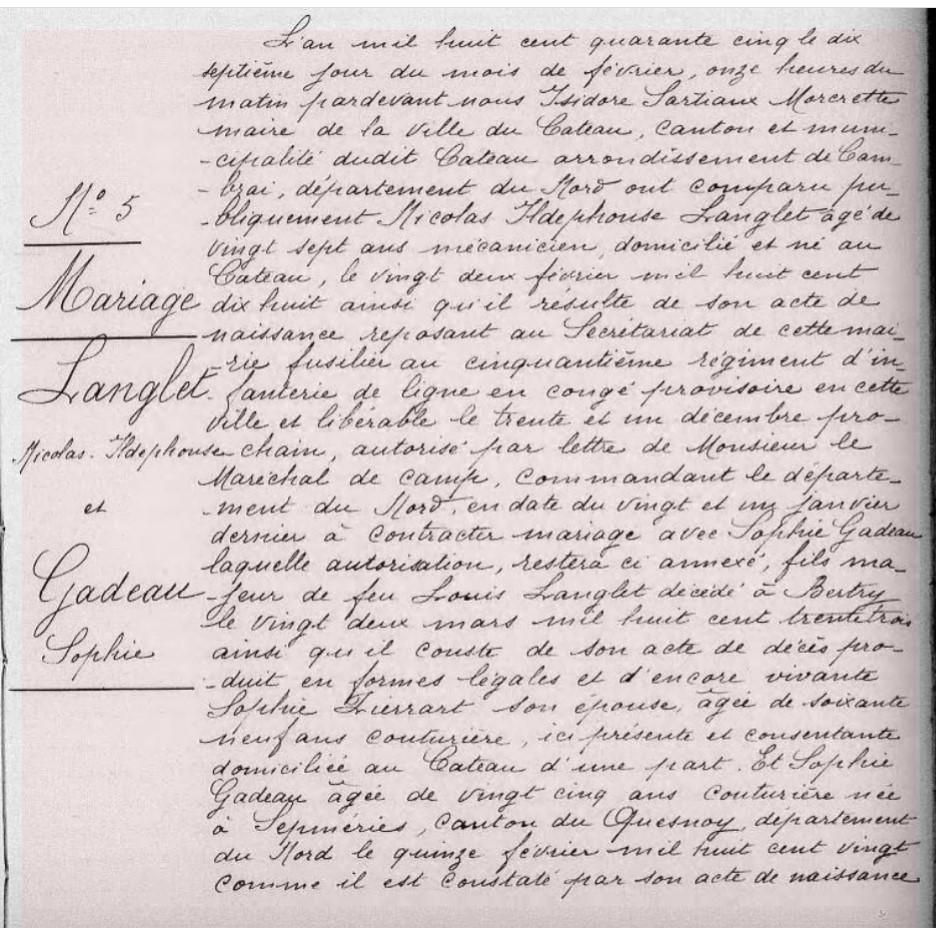 L'an mil huit cent quarante cinq le dix
septième jour du mois de février, onze heures du
matin pardevant nous Isidore Sartiaux Morcrette
maire de la ville du Cateau, canton et muni-
-cipalité dudit Cateau arrondissement de Cam-
-brai, département du Nord ont comparu pu-
-bliquement Nicolas Ildephouse Langlet âgé de
vingt sept ans mécanicien, domicilié et né au
Cateau, le vingt deux février mil huit cent
dix huit ainsi qu'il résulte de son acte de
naissance reposant au Secrétariat de cette mai-
-rie fusilier au cinquantième régiment d'in-
-fanterie de ligne en congé provisoire en cette
ville et libérable le trente et un décembre pro-
chain, autorisé par lettre de Monsieur le
Maréchal de camp, commandant le départe-
-ment du Nord, en date du vingt et un janvier
dernier à contracter mariage avec Sophie Gadeau
laquelle autorisation, restera ci annexé, fils ma-
-jeur de feu Louis Langlet décédé à Bertry
le vingt deux mars mil huit cent trente trois
ainsi qu'il conste de son acte de décès pro-
-duit en formes légales et d'encore vivante
Sophie son épouse, âgée de soixante
neuf ans couturière, ici présente et consentante
domiciliée au Cateau d'une part. Et Sophie
Gadeau âgée de vingt cinq ans couturière née
à Sepméries, canton du Quesnoy, département
du Nord le quinze février mil huit cent vingt
comme il est constaté par son acte de naissance
N° 5
Mariage
Langlet
Nicolas-Ildephouse
et
Gadeau
Sophie